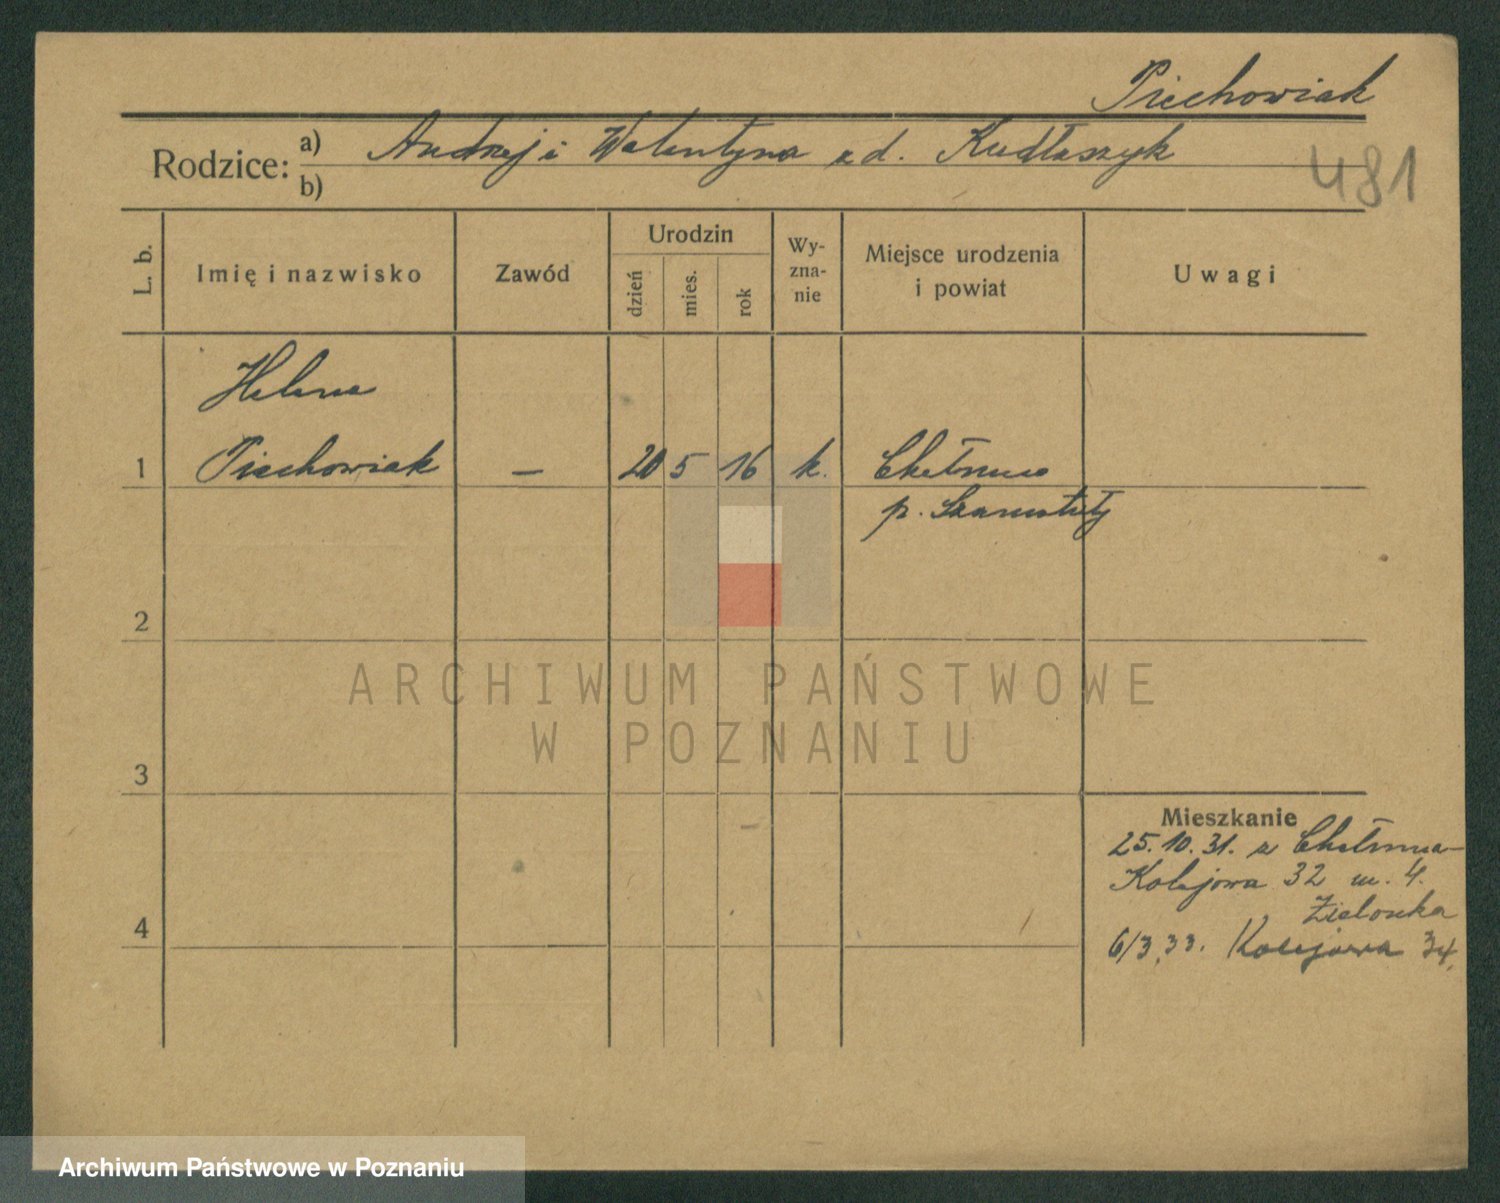 Piechowiak
Rodzice: a) Andrzej i Walentyna z d. Kudłaszyk
b)
481
L. b.
Imię i nazwisko
Zawód
Urodzin
dzień
mies.
rok
Wy-
zna-
nie
Miejsce urodzenia
i powiat
Uwagi
Helena
1 Piechowiak — 20 5 16 k. Chełmno
p. Szamotuły
2
3
4
Mieszkanie
25. 10. 31. z Chełmna
Kolejowa 32 m. 4.
Zielonka
6/3.33. Kolejowa 34.
ARCHIWUM PAŃSTWOWE
W POZNANIU
Archiwum Państwowe w Poznaniu